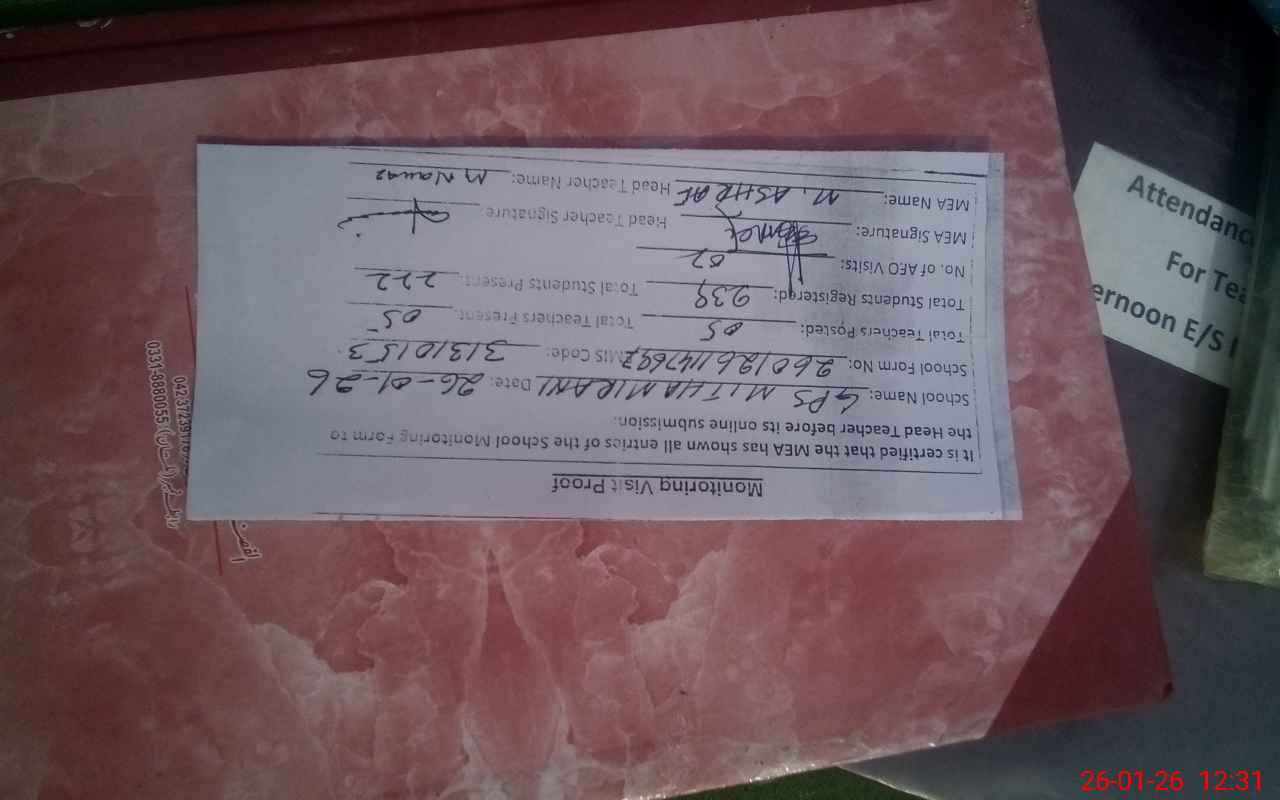 Monitoring Visit Proof
It is certified that the MEA has shown all entries of the School Monitoring Form to
the Head Teacher before its online submission.
School Name: GPS MITHA MIRANI Date: 26-01-26
School Form No: MIS Code: 31310153
Total Teachers Posted: 05 Total Teachers Present: 05
Total Students Registered: 239 Total Students Present: 222
No. of AEO Visits: 02
MEA Signature: Head Teacher Signature
MEA Name: M. ASHRAF Head Teacher Name: M Nawaz
Attendanc
For Tea
ernoon E/S
0331-8880055
26-01-26 12:31